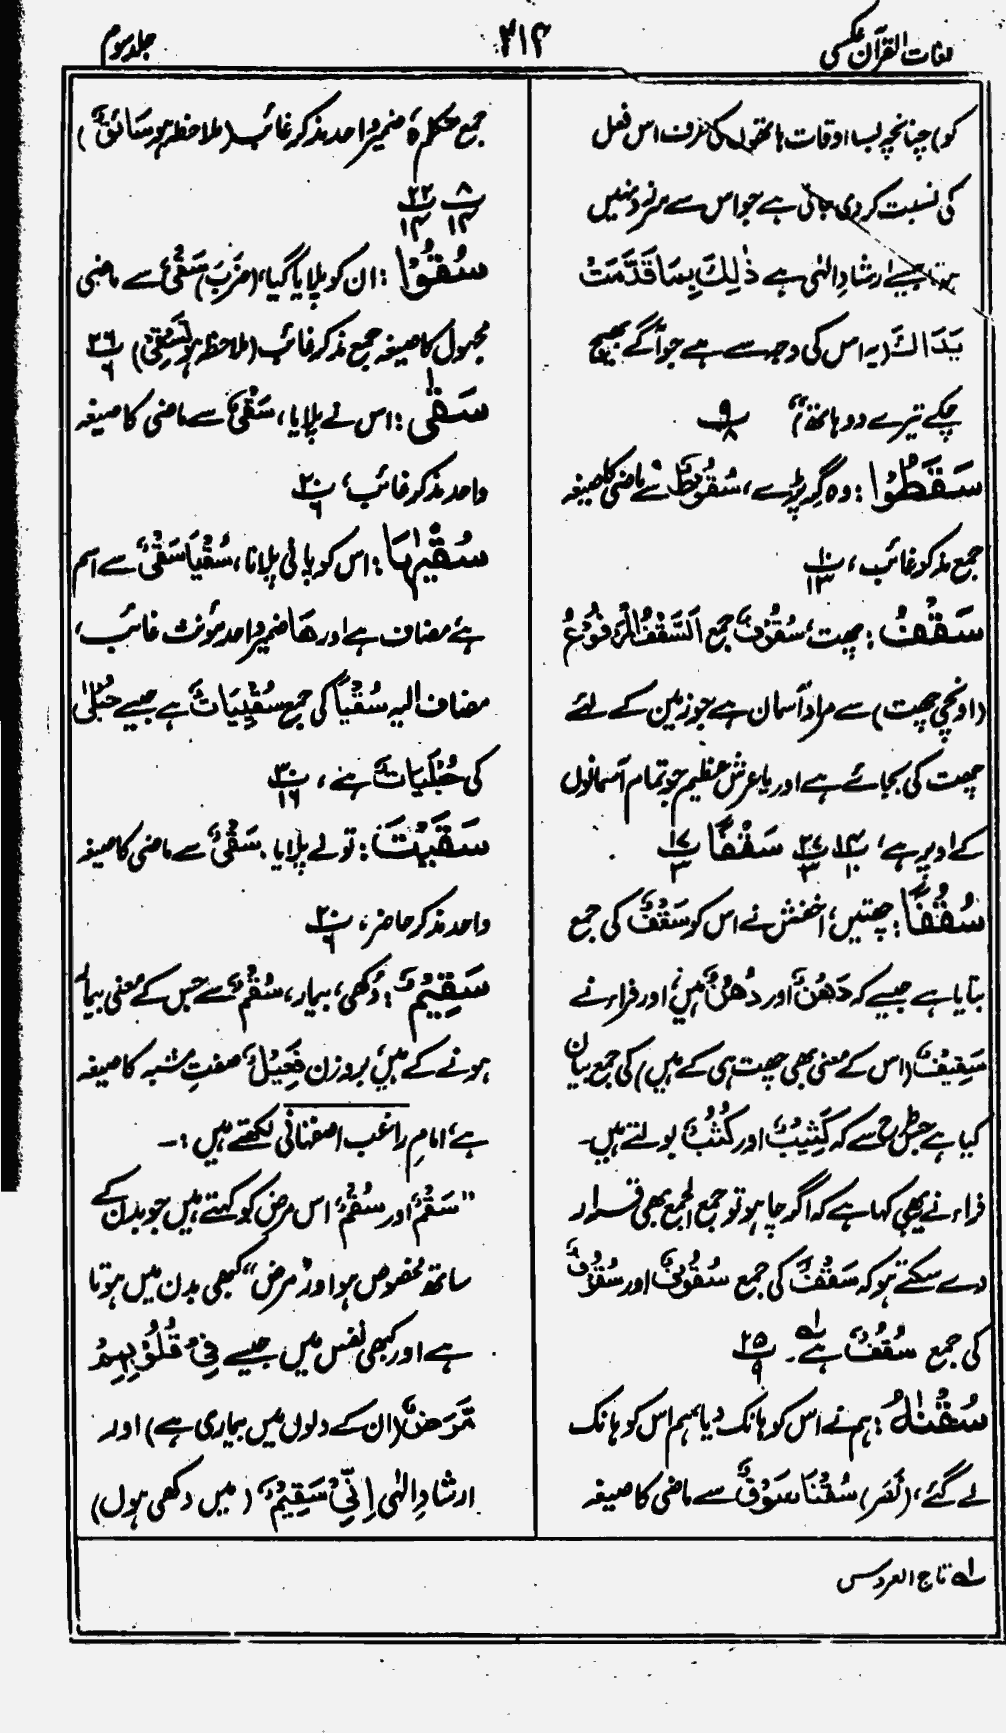 لغات القرآن عکسی
۲۱۴
جلد سوم
کو) چنانچہ بسا اوقات ہاتھوں کی طرف اس فعل
کی نسبت کر دی جاتی ہے جو اس سے سرزد نہیں
ہوتا جیسے ارشادِ الٰہی ہے ذٰلِكَ بِمَا قَدَّمَتْ
يَدَاكَ (یہ اس کی وجہ سے ہے جو آگے بھیج
چکے تیرے دو ہاتھ) ۹/۸
سَقَطُوْا: وہ گر پڑے، سُقُوْطٌ سے ماضی کا صیغہ
جمع مذکر غائب، ۱۰/۱۳
سَقْفُ: چھت، سُقُوْفٌ جمع اَلسَّقْفُ الْمَرْفُوْعُ
(اونچی چھت) سے مراد آسمان ہے جو زمین کے لئے
چھت کی بجائے ہے اور یا عرش عظیم جو تمام آسمانوں
کے اوپر ہے، ۱۴/۱۰ ۲۷/۳ سَقْفًا ۱۷/۳
سُقُفًا: چھتیں، اخفش نے اس کو سَقْفٌ کی جمع
بتایا ہے جیسے کہ دَهْنٌ اور دُهُنٌ ہیں، اور فراء نے
سَقِیْفٌ (اس کے معنی بھی چھت ہی کے ہیں) کی جمع بیان
کیا ہے جس طرح سے کہ كَثِيْبٌ اور كُثُبٌ بولتے ہیں۔
فراء نے یہ بھی کہا ہے کہ اگر چاہو تو جمع الجمع بھی قرار
دے سکتے ہو کہ سَقْفٌ کی جمع سُقُوْفٌ اور سُقُوْفٌ
کی جمع سُقُفٌ ہے۔ ؎۱ ۲۵/۹
سُقْنٰهُ: ہم نے اس کو ہانک دیا ہم اس کو ہانک
لے گئے، (نَصَرَ) سُقْنَا سَوْقٌ سے ماضی کا صیغہ
جمع متکلم هُ ضمیر واحد مذکر غائب (ملاحظہ ہو سَائِقٌ)
۸/۱۴ ۲۲/۱۴
سُقُوْا: ان کو پلایا گیا، (ضَرَبَ) سَقْیٌ سے ماضی
مجہول کا صیغہ جمع مذکر غائب (ملاحظہ ہو نُسْقِیْ) ۲۶/۶
سَقٰى: اس نے پلایا، سَقْیٌ سے ماضی کا صیغہ
واحد مذکر غائب، ۲۰/۶
سُقْيٰهَا: اس کو پانی پلانا، سُقْيَا سَقْیٌ سے اسم
ہے مضاف ہے اور هَا ضمیر واحد مؤنث غائب،
مضاف الیہ سُقْيَا کی جمع سُقْيَيَاتٌ ہے جیسے حُبْلٰى
کی حُبْلَيَاتٌ ہے، ۳۰/۱۶
سَقَيْتَ: تو نے پلایا۔ سَقْیٌ سے ماضی کا صیغہ
واحد مذکر حاضر، ۲۰/۶
سَقِيْمٌ: دُکھی، بیمار، سُقْمٌ سے جس کے معنی بیمار
ہونے کے ہیں، بروزن فَعِيْلٌ صفت مشبہ کا صیغہ
ہے، امام راغب اصفہانی لکھتے ہیں :۔
"سَقَمٌ اور سُقْمٌ اس مرض کو کہتے ہیں جو بدن کے
ساتھ مخصوص ہو اور "مرض" کبھی بدن میں ہوتا
ہے اور کبھی نفس میں جیسے فِیْ قُلُوْبِهِمْ
مَّرَضٌ (ان کے دلوں میں بیماری ہے) اور
ارشادِ الٰہی اِنِّیْ سَقِيْمٌ (میں دکھی ہوں)
؎۱ تاج العروس